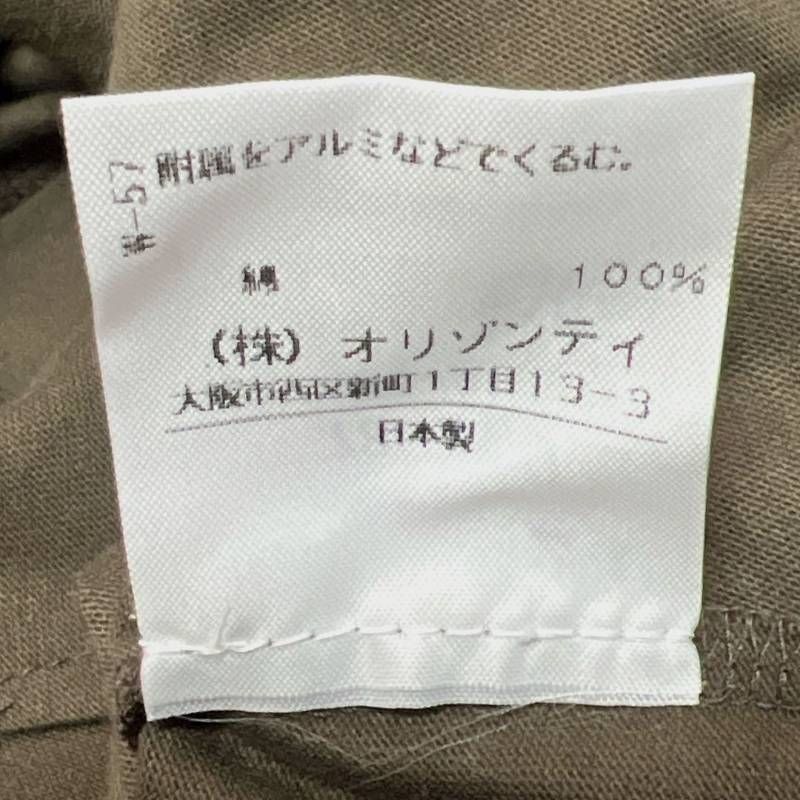 W-57
附属をアルミなどでくるむ。
綿 100%
(株) オリゾンティ
大阪市西区新町1丁目13-3
日本製